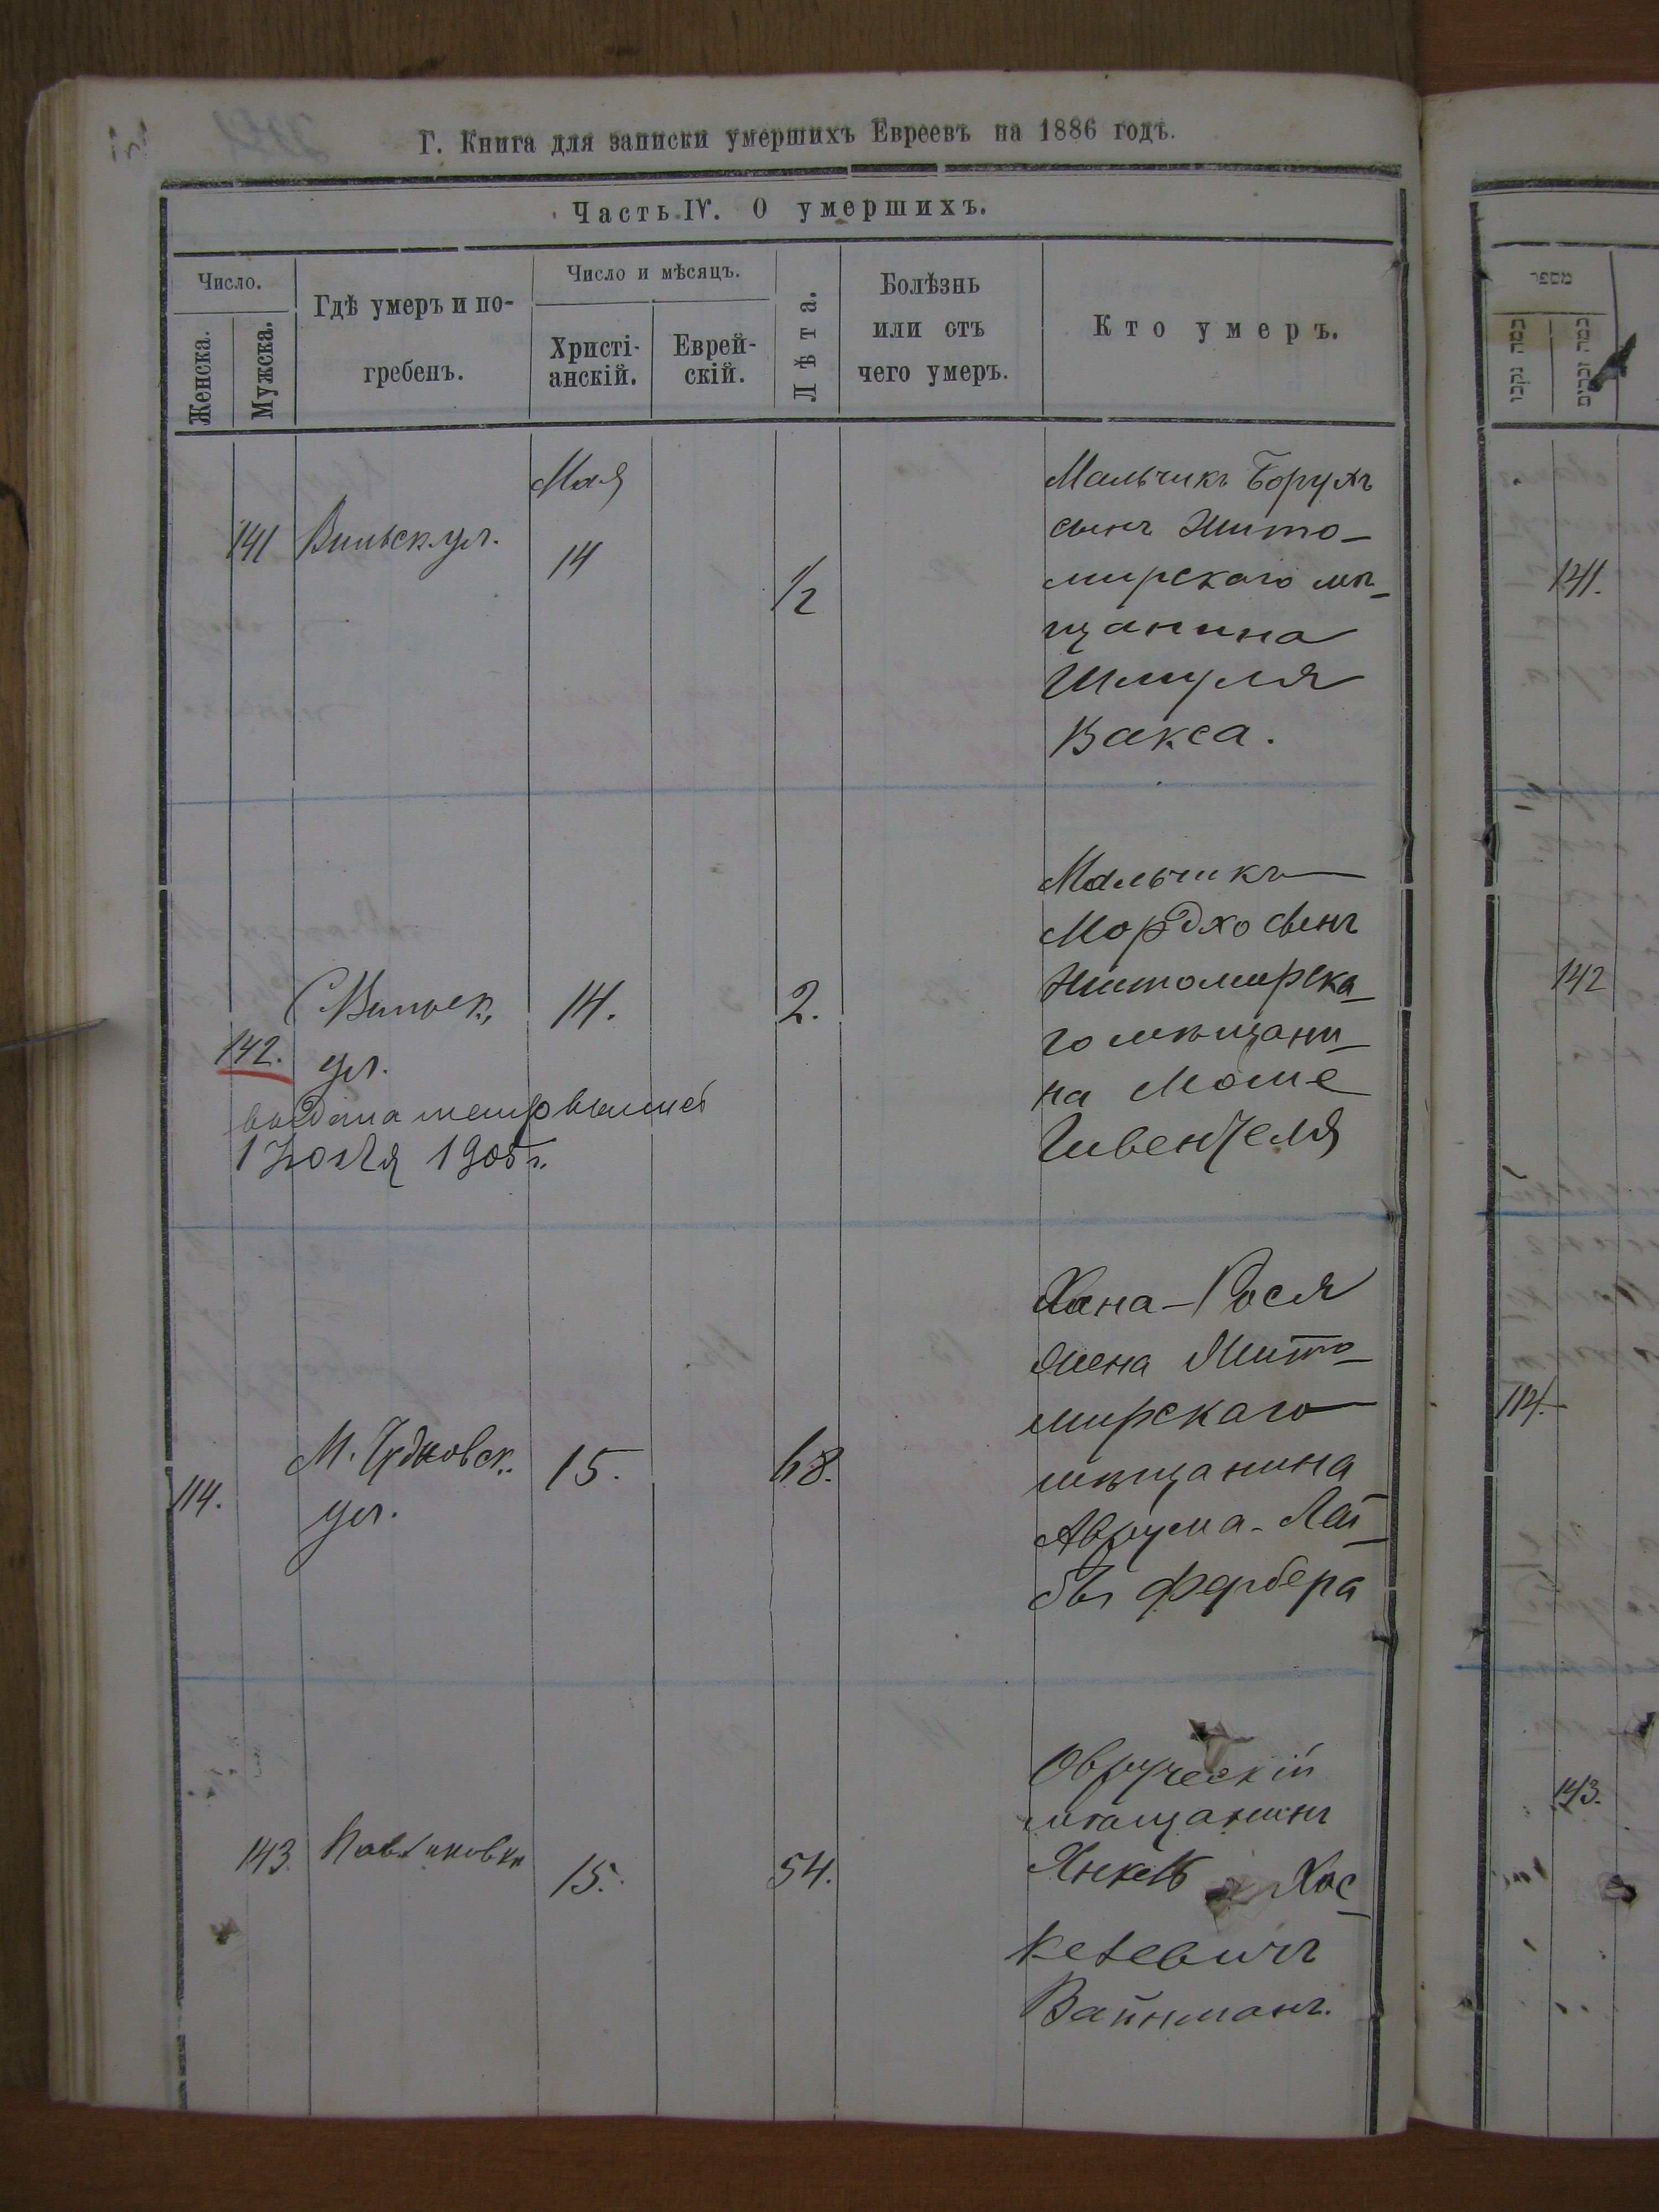 Г. Книга для записки умершихъ Евреевъ на 1886 годъ.
Часть IV. О умершихъ.
Число.
Женска.
Мужска.
Гдѣ умеръ и по-
гребенъ.
Число и мѣсяцъ.
Христі-
анскій.
Еврей-
скій.
Лѣта.
Болѣзнь
или отъ
чего умеръ.
Кто умеръ.
מספר
Мая
141 Вильск. ул.
14
1/2
Мальчикъ Борухъ
сынъ Жито-
мирскаго мѣ-
щанина
Шмуля
Вакса.
141.
142.
Вильск.
ул.
14.
2.
выдана метр
1 1905 г.
Мальчикъ
Мордхо сынъ
Житомирска-
го мѣщани-
на Моше
142
114.
М. Чудновск.
ул.
15.
68.
Хана-Рося
жена Жито-
мирскаго
мѣщанина
Аврума-Лей-
бы Фарбера
114.
143.
15.
54.
Овруческій
мѣщанинъ
Янкель Хас-
келевичъ
Вайнманъ.
143.